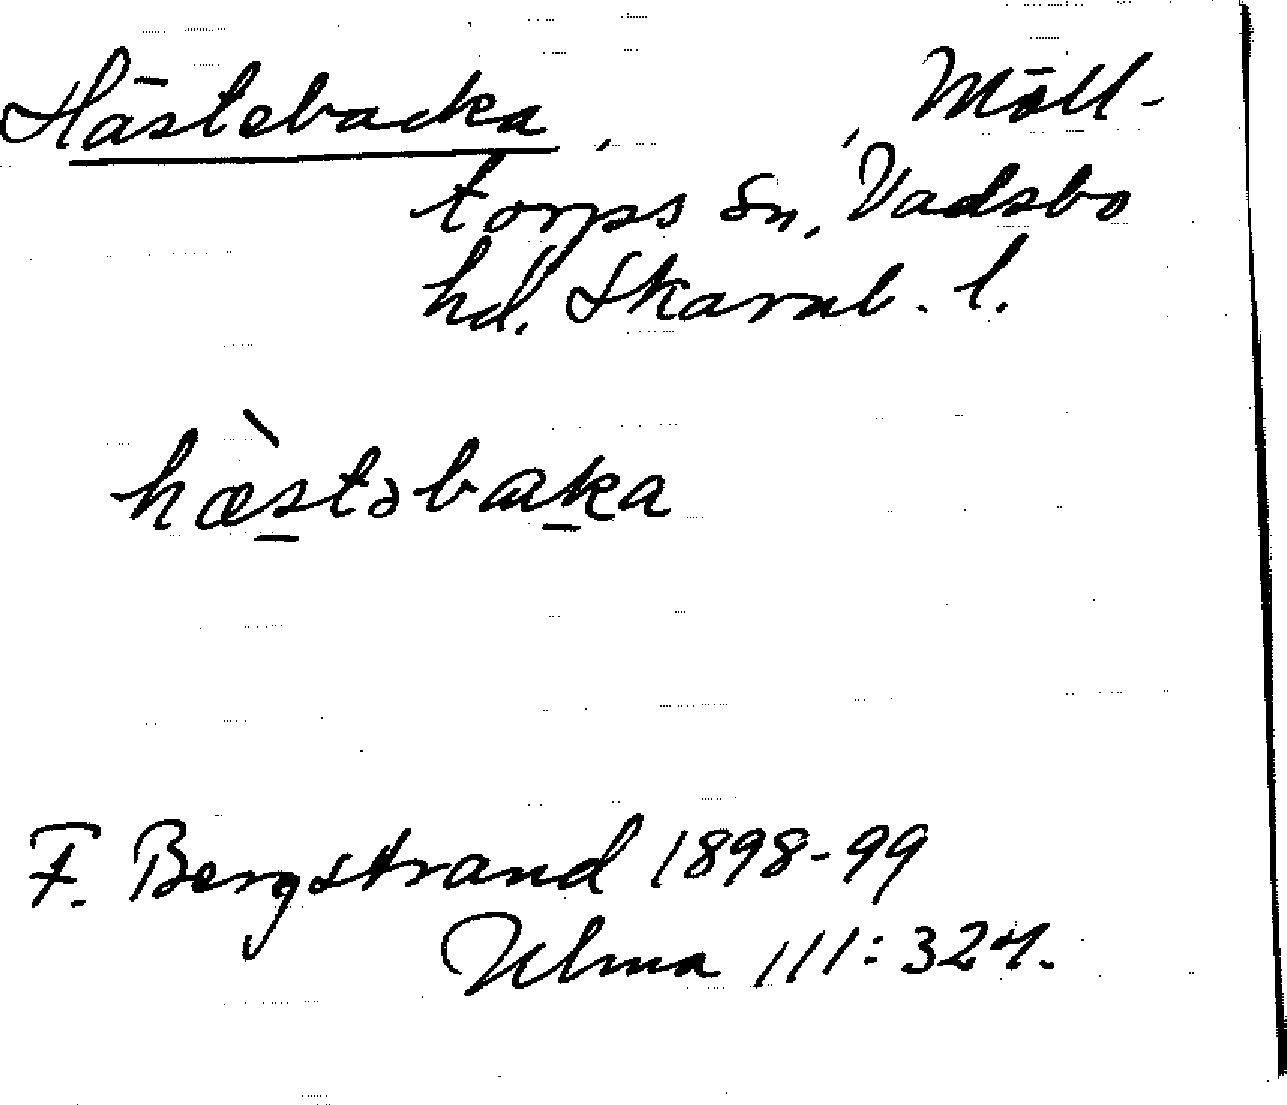 Hästebacka, , Möll-
torps sn, Vadsbo
hd. Skarab. l.
hæ̀stəbaka
F. Bergstrand 1898-99
Ulma 111:324.